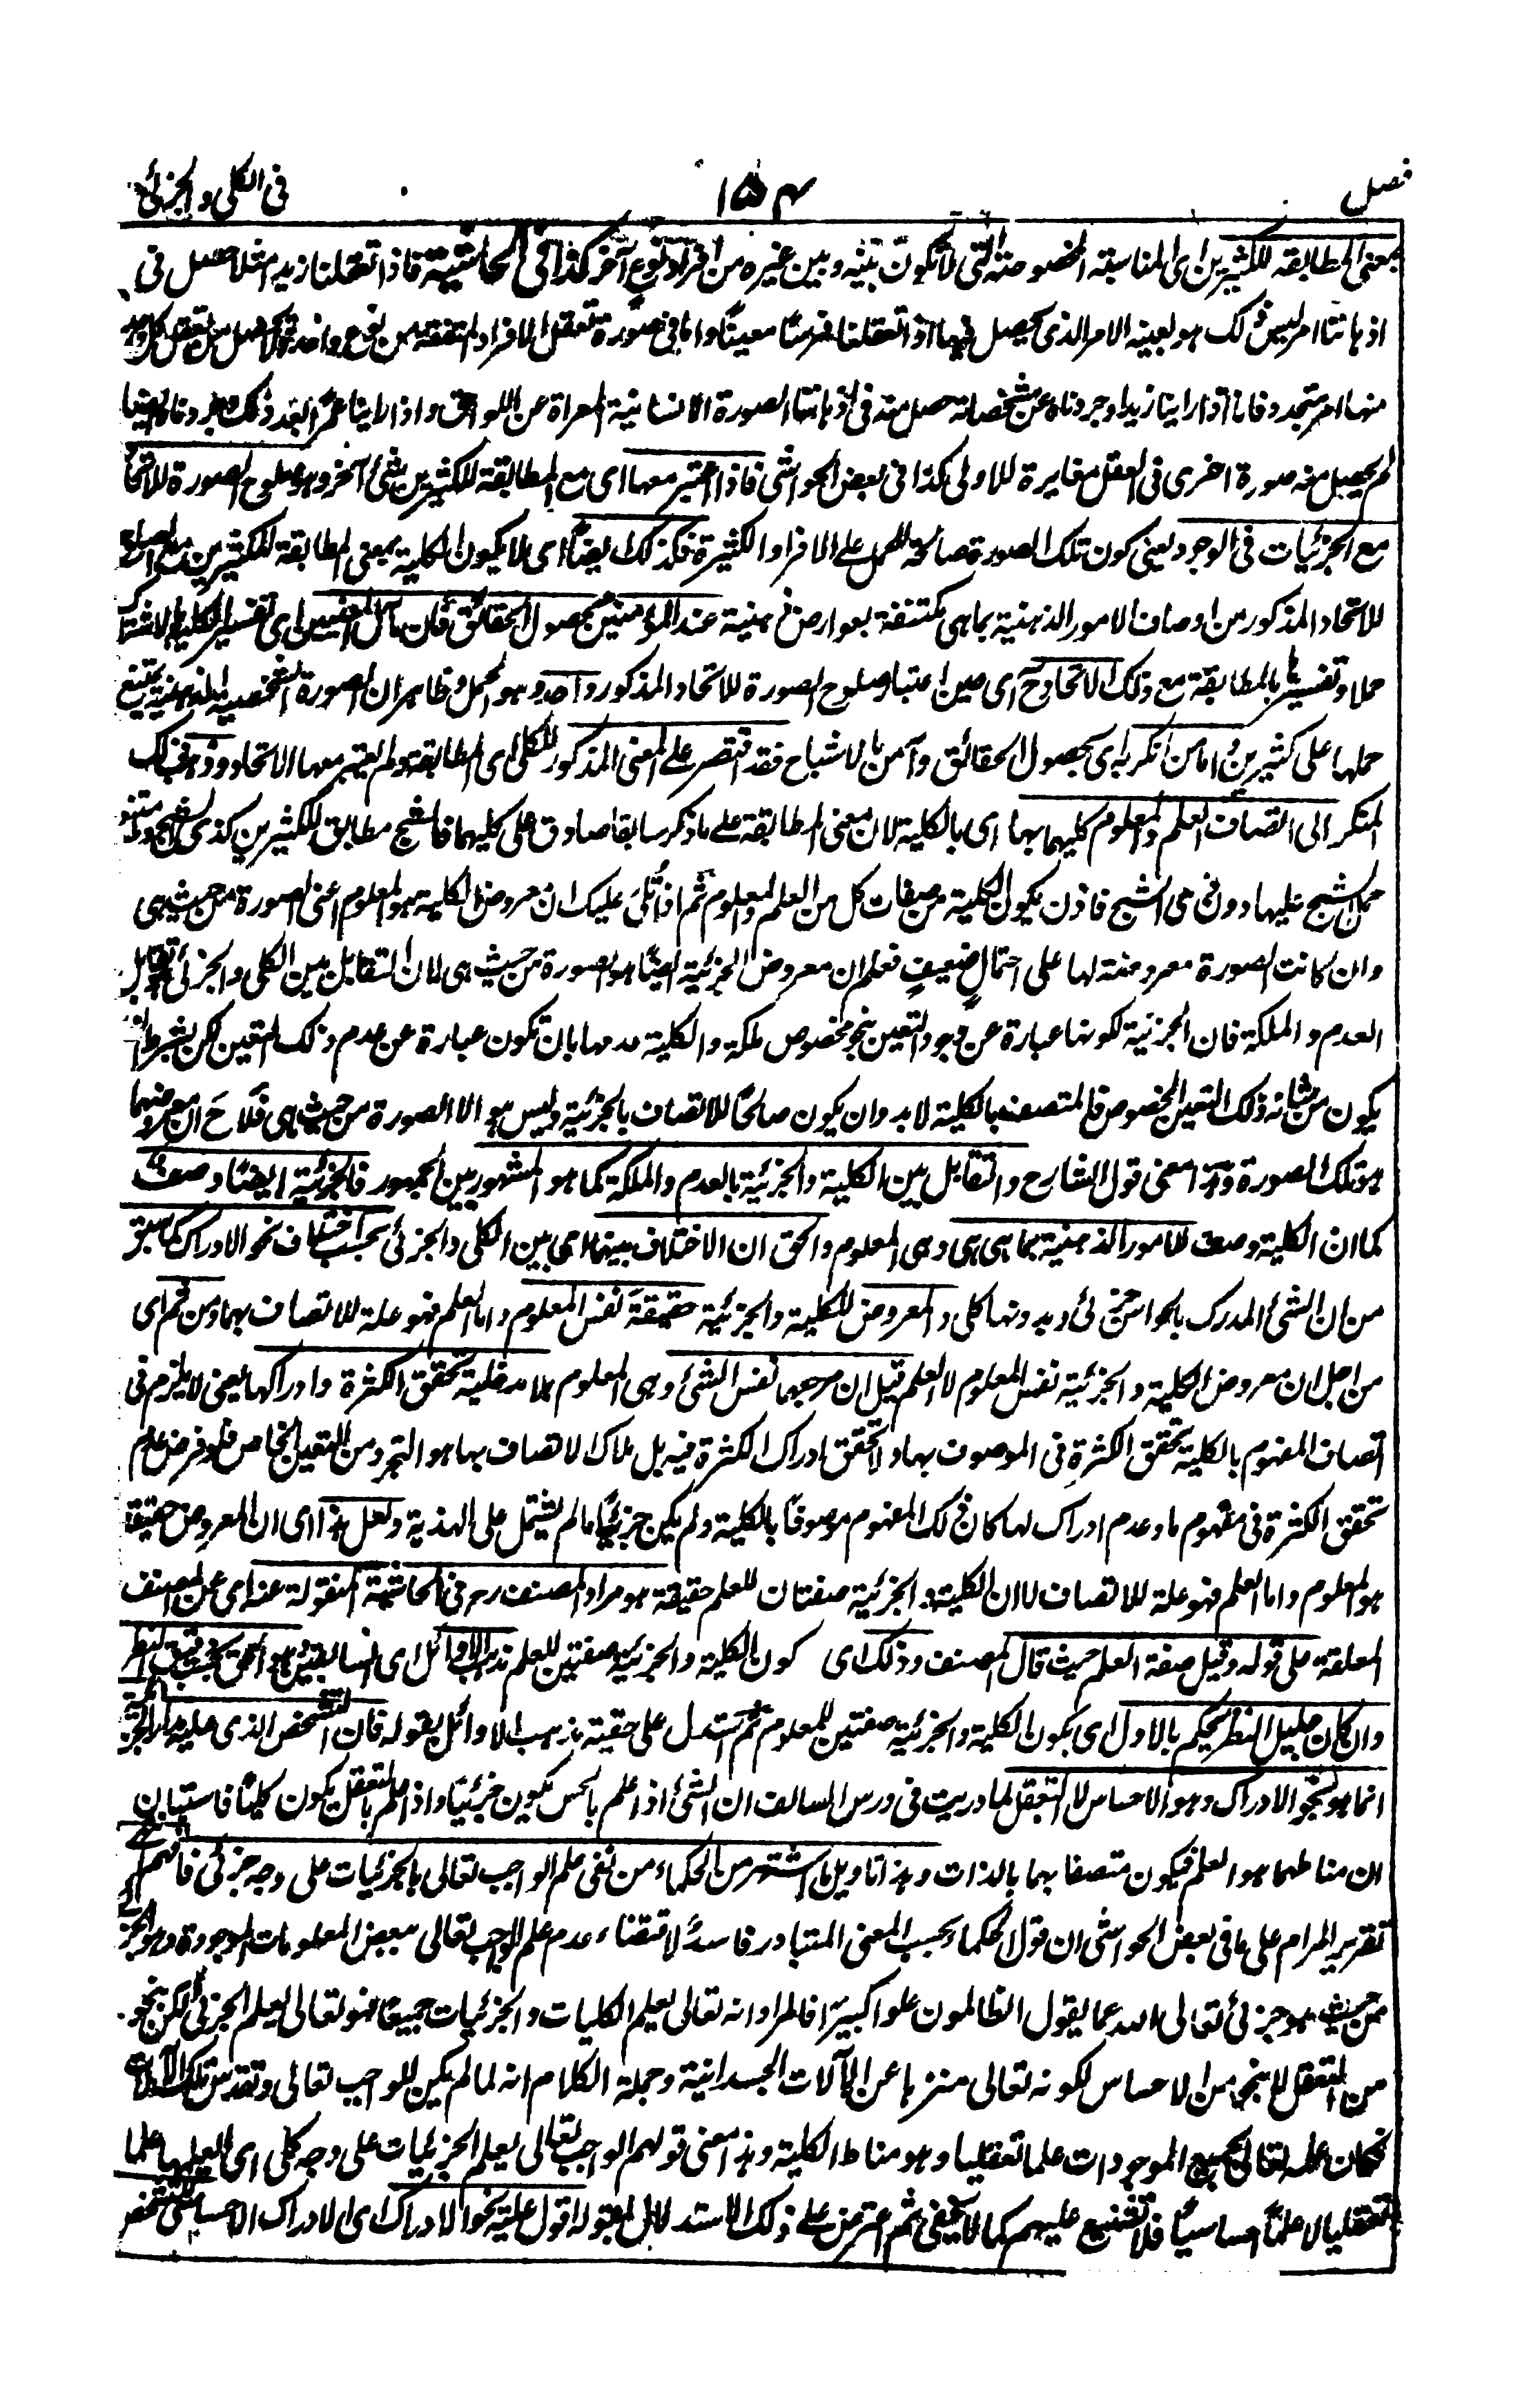 فصل ١٥٤ في الكلي والجزئي
بمعنى المطابقة للكثيرين اى المناسبة المخصوصة التى لا تكون بينه وبين غيره من افراد نوع آخر كذا فى الحاشية فاذا تعقلنا زيدا مثلا حصل فى
اذهاننا امر ليس ذلك هو بعينه الامر الذى يحصل فيها اذا تعقلنا فرسًا معينًا واما فى صورة تعقل الافراد المتفقة من نوع واحد فلا يحصل من تعقل كل واحد
منها امر متجدد فانا اذا راينا زيدا وجردناه عن مشخصاته حصل منه فى اذهاننا الصورة الانسانية المعراة عن اللواحق واذا راينا عمرًا بعد ذلك وجردناه ايضا
لم يحصل منه صورة اخرى فى العقل مغايرة للاولى كذا فى بعض الحواشى فاذا اعتبر معها اى مع المطابقة للكثيرين شئ آخر وهو صلوح الصورة للاتحاد
مع الجزئيات فى الوجود يعنى كون تلك الصورة صالحة للحمل على الافراد الكثيرة فكذلك ايضًا اى لا يكون الكلية بمعنى المطابقة للكثيرين مع الصلوح
للاتحاد المذكور من اوصاف الامور الذهنية بما هى مكتنفة بعوارض ذهنية عند المؤمنين بحصول الحقائق فان مآل المعنيين اى تفسير الكلية بالاشتراك
حملا وتفسيرها بالمطابقة مع ذلك الاتحاد وح اى حين اعتبار صلوح الصورة للاتحاد المذكور واحد وهو الحمل وظاهر ان الصورة الشخصية الذهنية يمتنع
حملها على كثيرين واما من انكر به اى بحصول الحقائق وآمن بالاشباح فقد اقتصر على المعنى المذكور للكلى اى المطابقة ولم يعتبر معها الاتحاد وذهب ذلك
المنكر الى اتصاف العلم والمعلوم كليهما بها اى بالكلية لان معنى المطابقة على ما ذكر سابقا صادق على كليهما فالشبح مطابق للكثيرين كذى الشبح
حمل الشبح عليها دون ذى الشبح فاذن يكون الكلية من صفات كل من العلم والمعلوم ثم اذا تُلى عليك ان معروض الكلية هو المعلوم اعنى الصورة من حيث هى
وان كانت الصورة معروضة لها على احتمال ضعيف فعلم ان معروض الجزئية ايضًا هو الصورة من حيث هى لان التقابل بين الكلى والجزئى تقابل
العدم والملكة فان الجزئية لكونها عبارة عن وجود التعين بنحو مخصوص ملكة والكلية عدمها بان تكون عبارة عن عدم ذلك التعين لكن بشرط ان
يكون من شانه ذلك التعين المخصوص فالمتصف بالكلية لا بد وان يكون صالحًا للاتصاف بالجزئية وليس هو الا الصورة من حيث هى فلاح ان معروضهما
هو تلك الصورة وهذا معنى قول الشارح والتقابل بين الكلية والجزئية بالعدم والملكة كما هو المشهور بين الجمهور فالجزئية ايضًا وصف
كما ان الكلية وصف للامور الذهنية بما هى هى وهى المعلوم والحق ان الاختلاف بينهما اى بين الكلى والجزئى بحسب اختلاف نحو الادراك كما سبق
من ان الشئ المدرك بالحواس جزئى وبدونها كلى والمعروض للكلية والجزئية حقيقة نفس المعلوم واما العلم فهو علة للاتصاف بهما ومن ثم اى
من اجل ان معروض الكلية والجزئية نفس المعلوم لا العلم قيل ان مرجعهما نفس الشئ وهى المعلوم بلا مدخلية تحقق الكثرة وادراكها يعنى لا يلزم فى
اتصاف المفهوم بالكلية تحقق الكثرة فى الموصوف بها ولا تحقق ادراك الكثرة فيه بل ملاك الاتصاف بها هو التجرد من التعين الخاص فلو فرض عدم
تحقق الكثرة فى مفهوم ما وعدم ادراك لها كان ذلك المفهوم موصوفًا بالكلية ولم يكن جزئيًا ما لم يشتمل على الهذية ولعل هذا اى ان المعروض حقيقة
هو المعلوم واما العلم فهو علة للاتصاف لا ان الكلية والجزئية صفتان للعلم حقيقة هو مراد المصنف رح فى الحاشية المنقولة عنه اى عن المصنف
المعلقة على قوله وقيل صفة العلم حيث قال المصنف وذلك اى كون الكلية والجزئية صفتين للعلم مذهب الاوائل اى السابقين وهو الحق بحسب دقيق النظر
وان كان جليل النظر يحكم بالاول اى بكون الكلية والجزئية صفتين للمعلوم ثم استدل على حقية مذهب الاوائل بقوله فان التشخص الذى عليه مدار الجزئية
انما هو بنحو الادراك وهو الاحساس لا التعقل لما دريت فى درس السالف ان الشئ اذا علم بالحس يكون جزئيًا واذا علم بالتعقل يكون كليًا فاستبان
ان مناطهما هو العلم فيكون متصفا بهما بالذات وهذا تاويل ما اشتهر من الحكماء من نفى علم الواجب تعالى بالجزئيات على وجه جزئى فافهم
تقرير المرام على ما فى بعض الحواشى ان قول الحكماء بحسب المعنى المتبادر فاسد لاقتضاء عدم علم الواجب تعالى ببعض المعلومات الموجودة وهو الجزئى
من حيث هو جزئى تعالى الله عما يقول الظالمون علوا كبيرًا فالمراد انه تعالى يعلم الكليات والجزئيات جميعًا فهو تعالى يعلم الجزئى لكن بنحو
من التعقل لا بنحو من الاحساس لكونه تعالى منزها عن الآلات الجسدانية وجملة الكلام انه لما لم يكن للواجب تعالى وتقدس تلك الآلات
فكان علمه تعالى بجميع الموجودات علما تعقليا وهو مناط الكلية وهذا معنى قولهم الواجب تعالى يعلم الجزئيات على وجه كلى اى يعلمها علما
تعقليا لا علمًا احساسيًا فلا تشنيع عليهم كما لا يخفى ثم اعترض على ذلك الاستدلال بقوله اقول علية نحو الادراك اى الادراك الاحساسى للتشخص